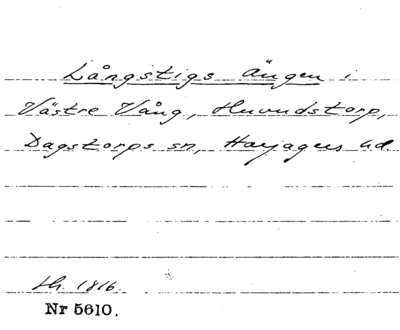 Långstigs Ängen i
Västre Vång, Huvudstorp,
Dagstorps sn, Harjagers hd.
Sh. 1816.
Nr 5610.